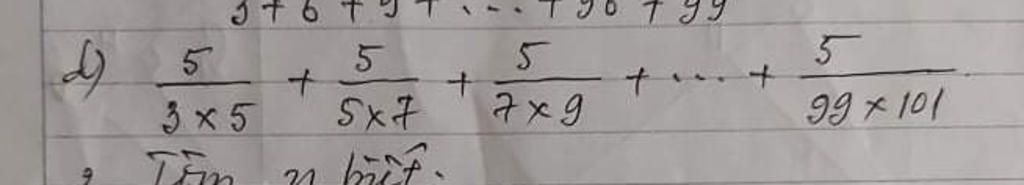 3 + 6 + 9 + ... + 96 + 99
d) 5/(3 × 5) + 5/(5 × 7) + 5/(7 × 9) + ... + 5/(99 × 101)
Tìm biết.